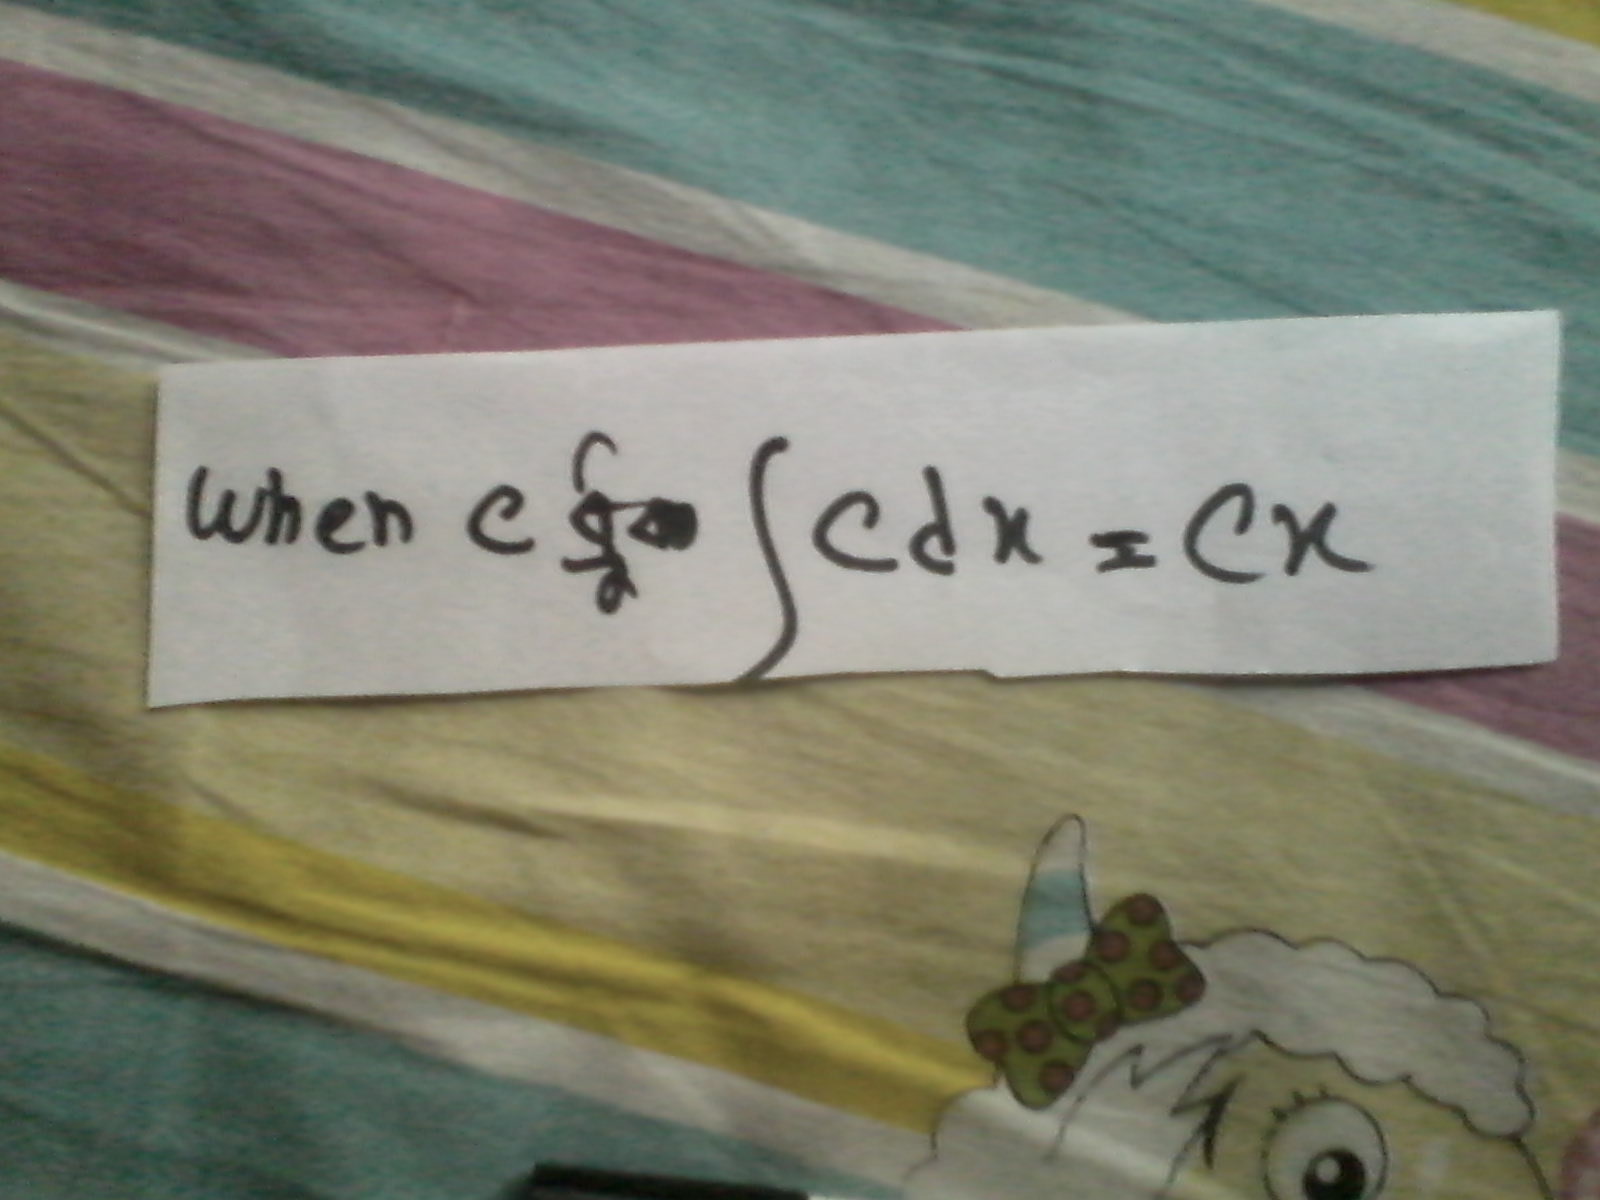 When C ∫ C dx = Cx